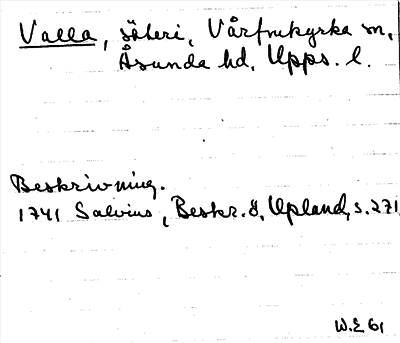 Valla, säteri, Vårfrukyrka sn,
Åsunda hd, Upps. l.
Beskrivning.
1741 Salvius, Beskr. ö. Upland, s. 271
W.E 61